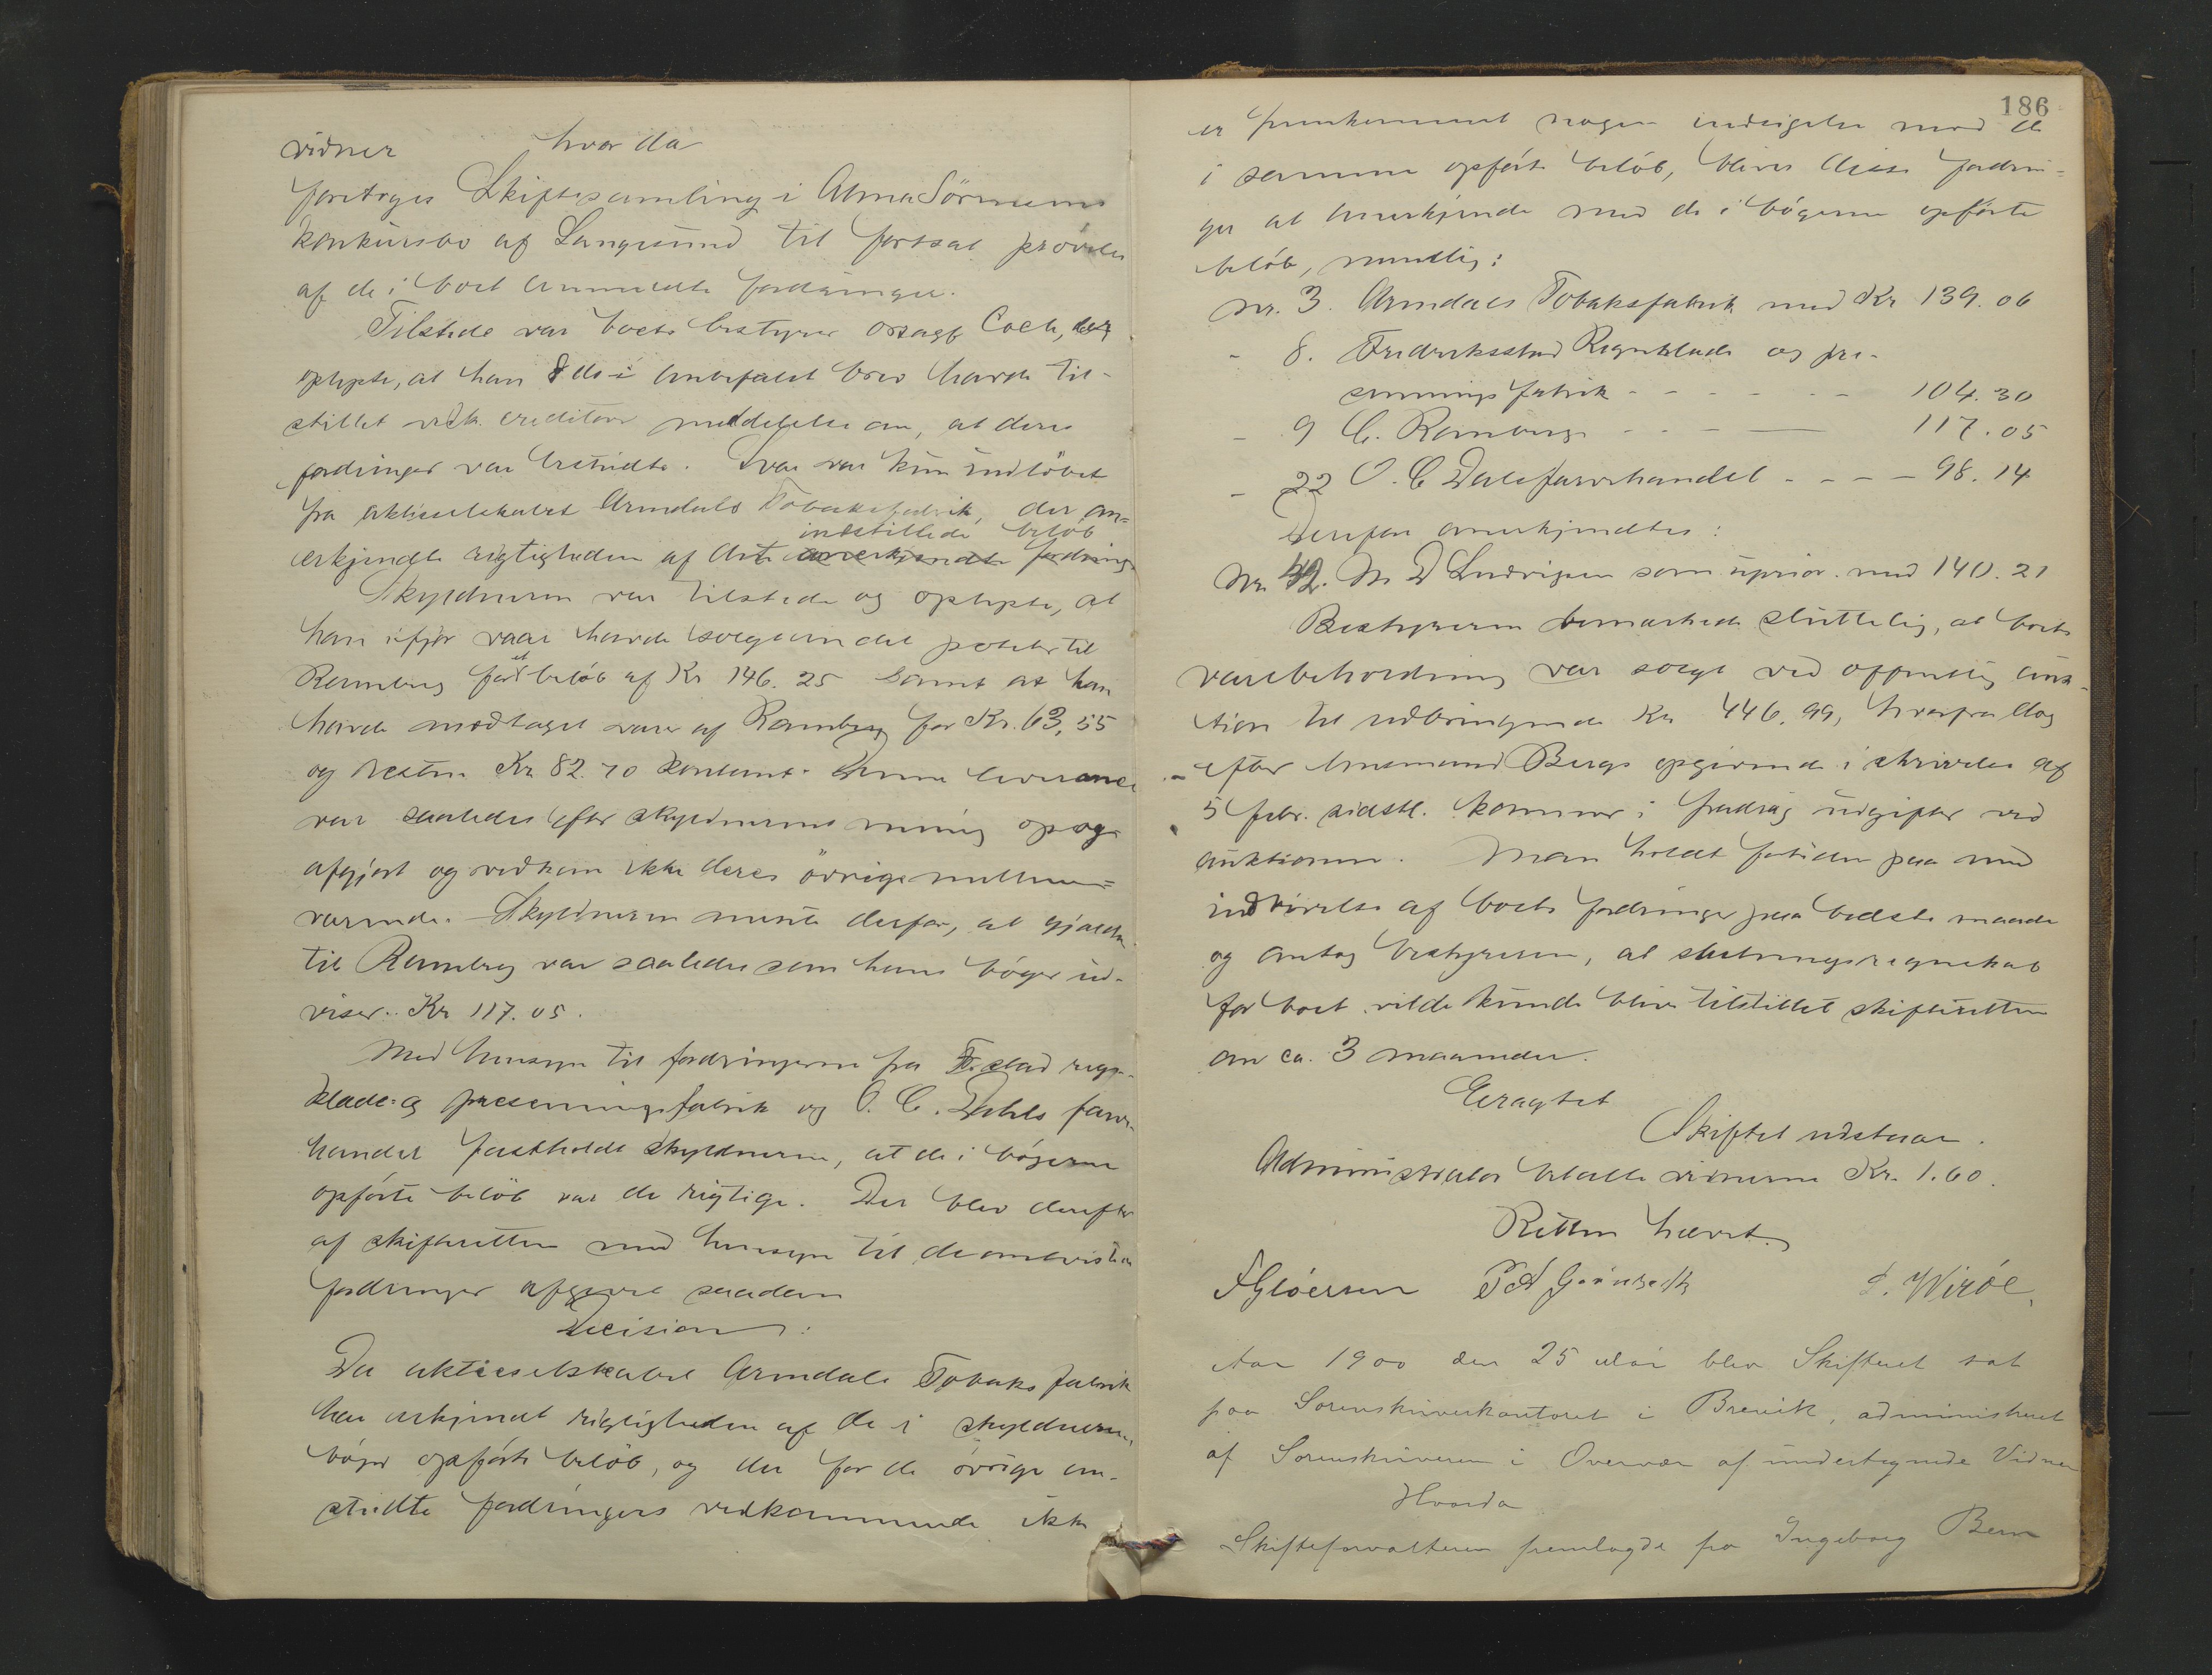 vidner hvorda
foretoges Skiftesamling i Alma Sörensens
konkursbo af Langesund til fortsat prövelse
af de i boet anmeldte fordringer.
Tilstede var boets bestyrer orsagf. Coch, der
oplyste, at han 8 ds i anbefalet brev havde til-
stillet vedk. creditorer meddelelse om, at deres
fordringer var bestridte. Svar var kun indlöbet
fra aktieselskabet Arendals Tobaksfabrik, der an-
indstillede beløb
erkjendte rigtigheden af det anerkjendte fordring
Skyldneren var tilstede og oplyste, at
han ifjor vaar havde solgt en del poteter til
Ramberg for et beløb af Kr 146.25 samt at han
havde modtaget varer af Ramberg for Kr. 63,55
og resten Kr. 82.70 kontant. Denne leverance
var saaledes efter skyldnerens mening op og
afgjort og vedkom ikke deres övrige mellem=
værende. Skyldneren mente derfor, at gjælden
til Ramberg var saaledes som hans bøger ud-
viser: Kr 117.05.
Med hensyn til fordringerne fra F.stad regn-
klæde- og presenningsfabrik og O. C. Dahls farve-
handel fastholdt skyldneren, at de i bøgerne
opførte beløb var de rigtige. Der blev derefter
af skifteretten med hensyn til de omtvistede
fordringer afgivet saadan
Decision:
Da aktieselskabet Arendals Tobaksfabrik
har erkjendt rigtigheden af de i skyldnerens
bøger opførte beløb, og der for de øvrige om-
stridte fordringers vedkommende ikke
186
er fremkommet nogen indsigelse mod de
i samme opført beløb, bliver disse fordrin=
ger at anerkjende med de i bøgerne opførte
beløb, nemlig:
Nr. 3. Arendals Tobaksfabrik med Kr 139.06
- 8. Fredriksstad Regnklæde og pre-
sennings fabrik - - - - - - 104.30
- 9 C. Ramberg - - - 117.05
- 22 O. C Dals farvehandel - - - - 98.14
Derefter anerkjendtes:
Nr 42. M D Ludvigsen som uprior. med 140.21
Bestyreren bemærkede sluttelig, at boets
varebeholdning var solgt ved offentlig auk-
tion til udbringende Kr 446.99, hvorfra dog
efter lensmand Bergs opgivende i skrivelse af
5 febr. sidstl. kommer i fradrag udgifter ved
auktionen. Man holdt fortiden paa med
inddrivelse af boets fordringer paa bedste maade
og antog bestyreren, at slutningsregnskab
for boet vilde kunde blive tilstillet skifteretten
om ca. 3 maaneder.
Eragtet
Skiftet udstaar.
Administrator betalte vidnerne Kr. 1.60.
Retten hævet.
F Gløersen P A Grönbech L. Wirøe
Aar 1900 den 25 Mai blev Skifteret sat
paa Sorenskriverkontoret i Brevik, administreret
af Sorenskriveren i Overvær af undertegnede Vidner
Hvorda
Skifteforvalteren fremlagde fra Ingeborg Bern